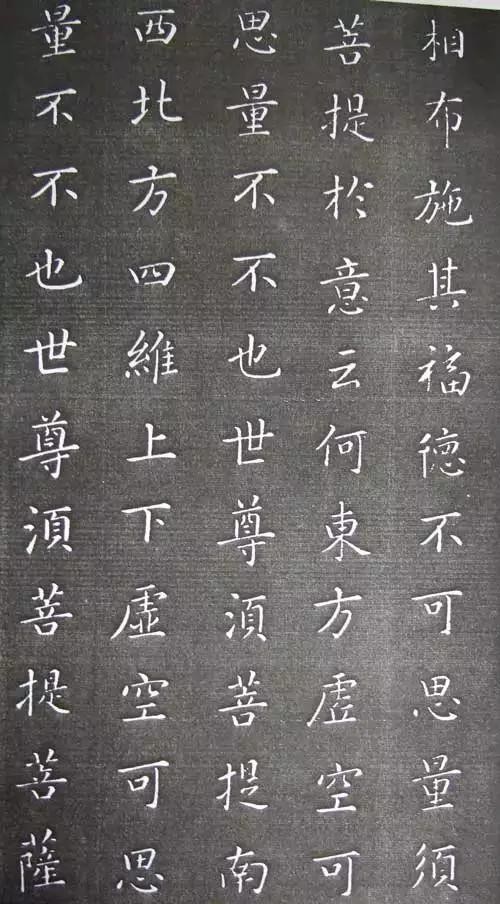 相布施其福德不可思量須
菩提於意云何東方虛空可
思量不不也世尊須菩提南
西北方四維上下虛空可思
量不不也世尊須菩提菩薩